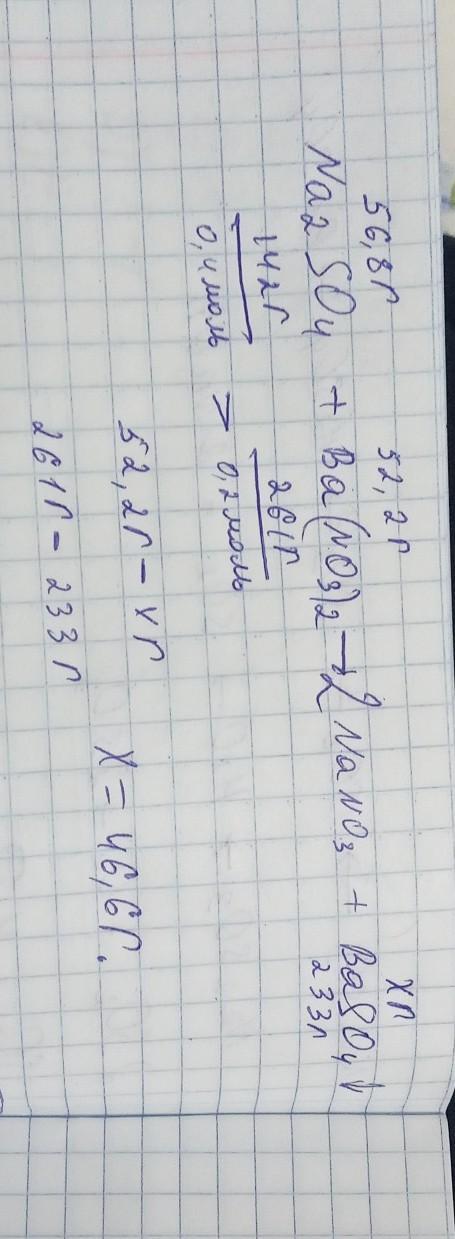 56,8г 52,2г хг
Na2SO4 + Ba(NO3)2 → 2NaNO3 + BaSO4↓
142г 261г 233г
0,4моль > 0,2моль
52,2г - хг
261г - 233г
X = 46,6г.